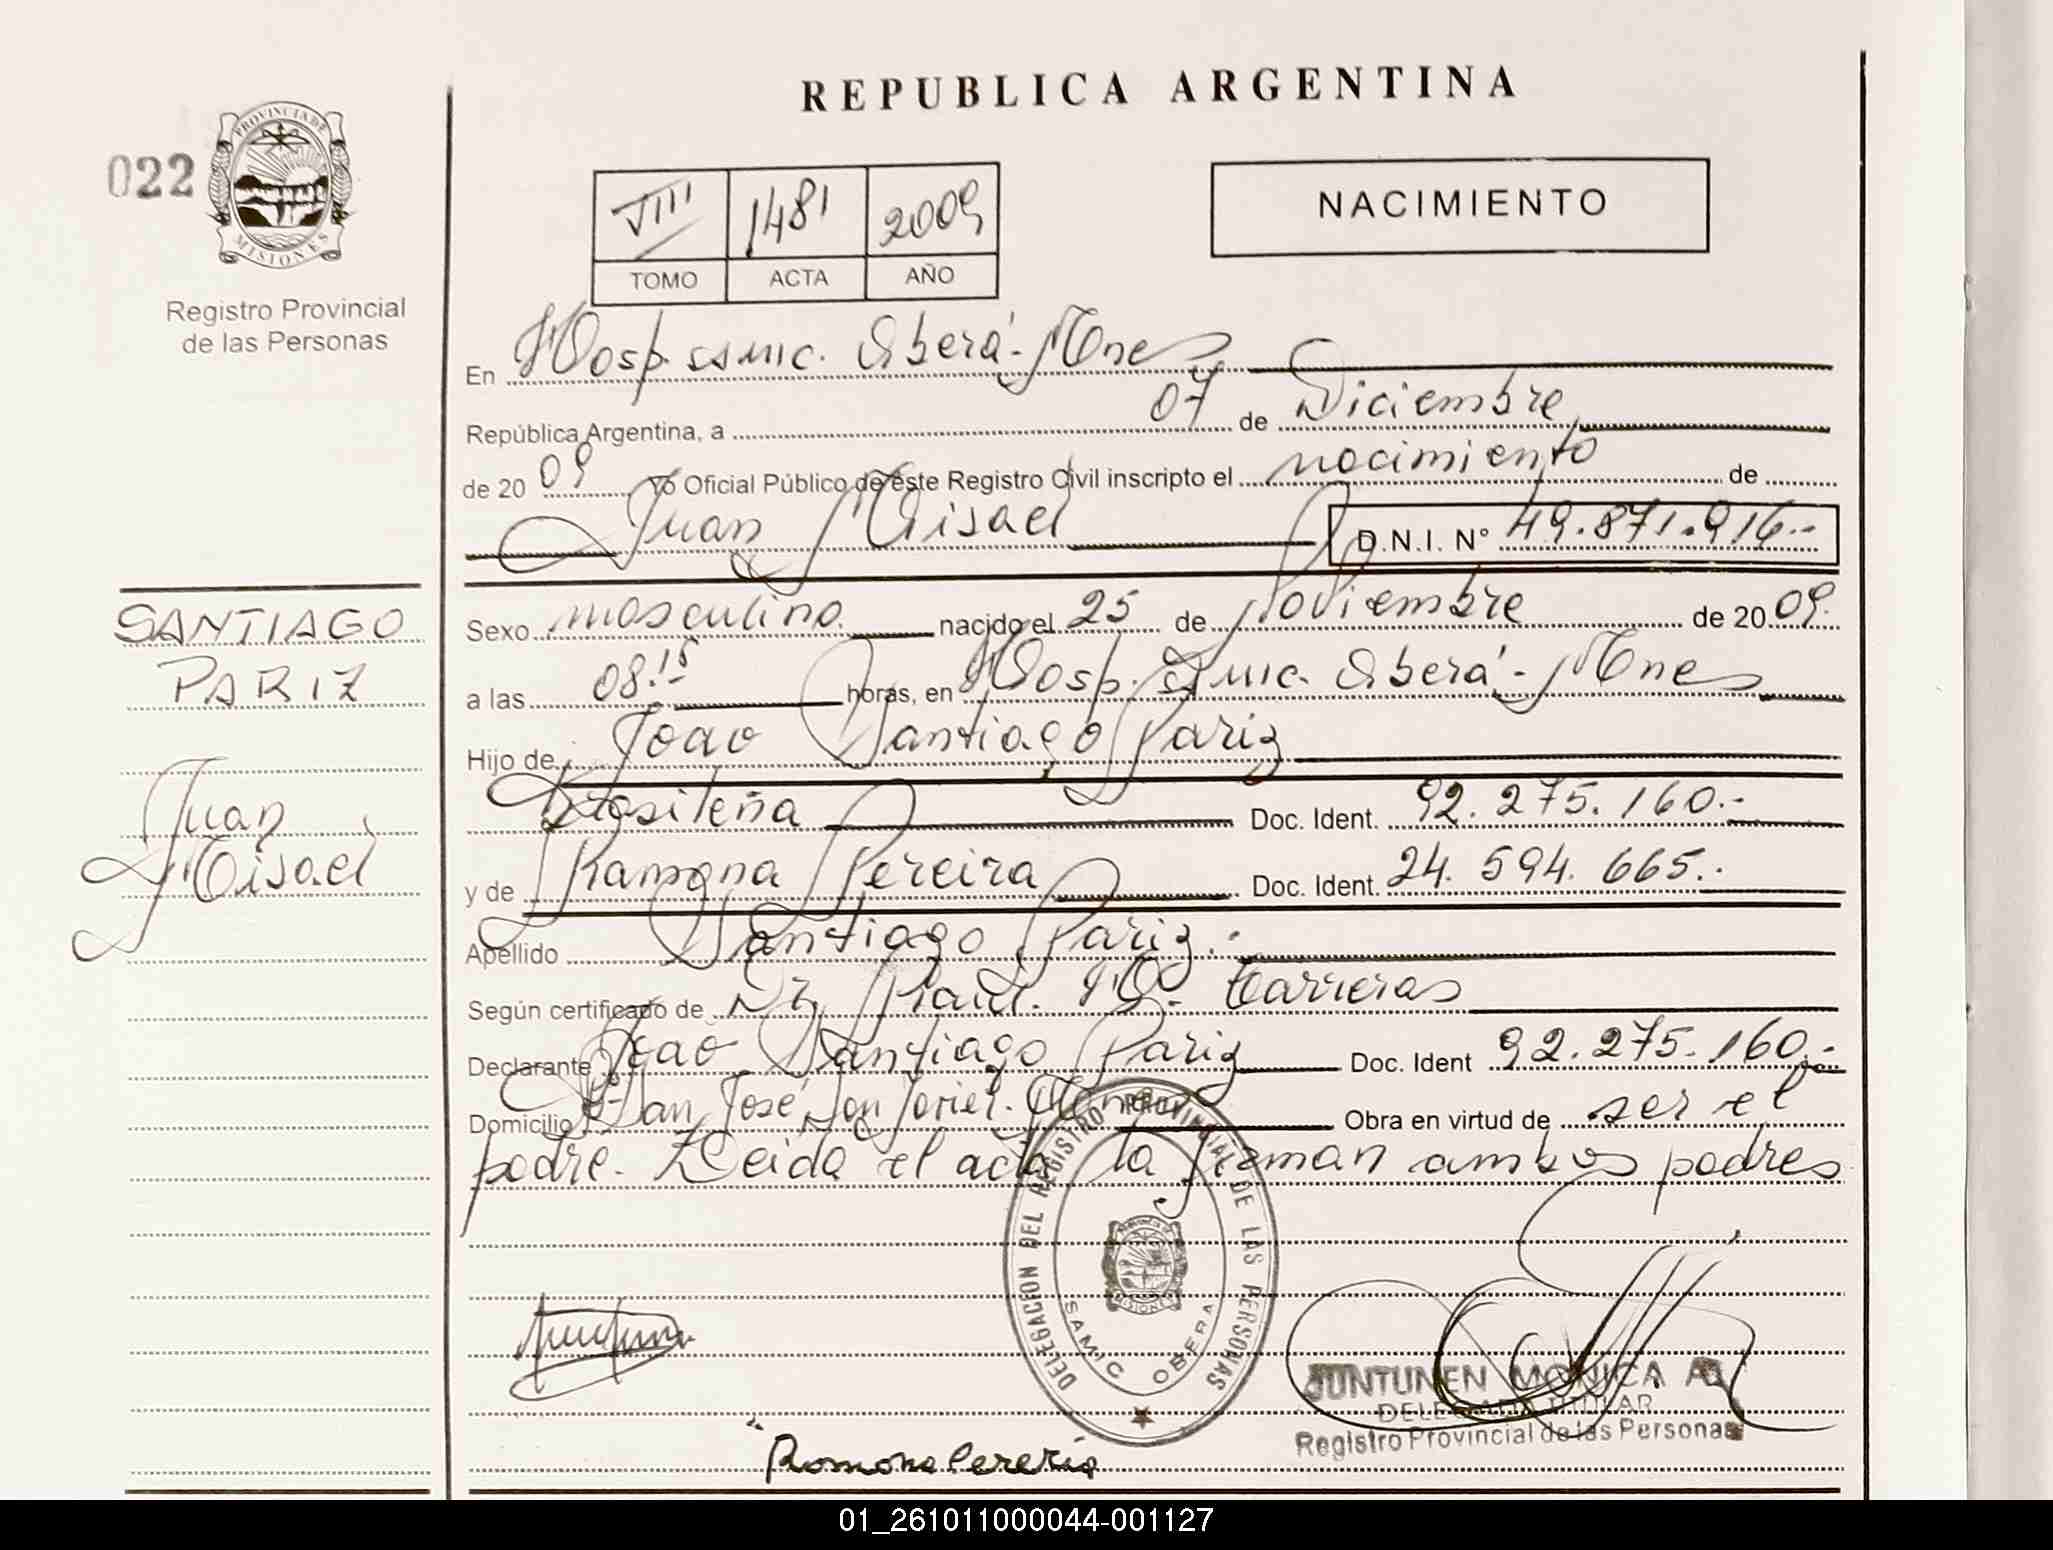 REPUBLICA ARGENTINA
022
PROVINCIA DE
MISIONES
Registro Provincial
de las Personas
VIII 1481 2009
TOMO ACTA AÑO
NACIMIENTO
En Hosp. samic. Oberá - Mnes
República Argentina, a 07 de Diciembre
de 20 09 Yo Oficial Público de este Registro Civil inscripto el nacimiento de
Juan Misael D.N.I. N° 49.871.916.-
SANTIAGO
PARIZ
Juan
Misael
Sexo masculino. nacido el 25 de Noviembre de 20 09.
a las 08.15 horas, en Hosp. Samic. Oberá - Mnes
Hijo de Joao Santiago Pariz
Brasileña Doc. Ident. 92.275.160.-
y de Ramona Pereira Doc. Ident. 24.594.665.-
Apellido Santiago Pariz.-
Según certificado de Dr. Carreras
Declarante Joao Santiago Pariz Doc. Ident 92.275.160.-
Domicilio San José San Javier. Mnes Obra en virtud de ser el
padre. Leida el acta la firman ambos padres
DELEGACION DEL REGISTRO PROVINCIAL DE LAS PERSONAS
MISIONES
SAMIC OBERA
JUNTUNEN MONICA A.
DELEGADA TITULAR
Registro Provincial de las Personas
Romona Perería
01_261011000044-001127